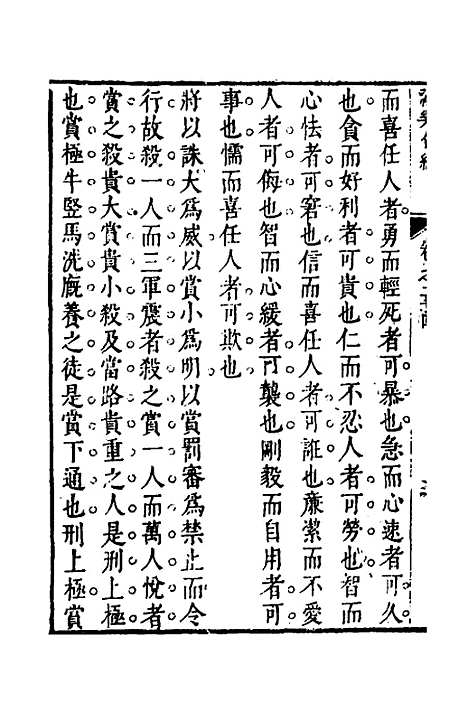 而喜任人者勇而輕死者可暴也急而心速者可久
也貪而好利者可貴也仁而不忍人者可勞也智而
心怯者可窘也信而喜任人者可誑也廉潔而不愛
人者可侮也智而心緩者可襲也剛毅而自用者可
事也懦而喜任人者可欺也
將以誅大爲威以賞小爲明以賞罰審爲禁止而令
行故殺一人而三軍震者殺之賞一人而萬人悅者
賞之殺貴大賞貴小殺及當路貴重之人是刑上極
也賞極牛竪馬洗廐養之徒是賞下通也刑上極賞